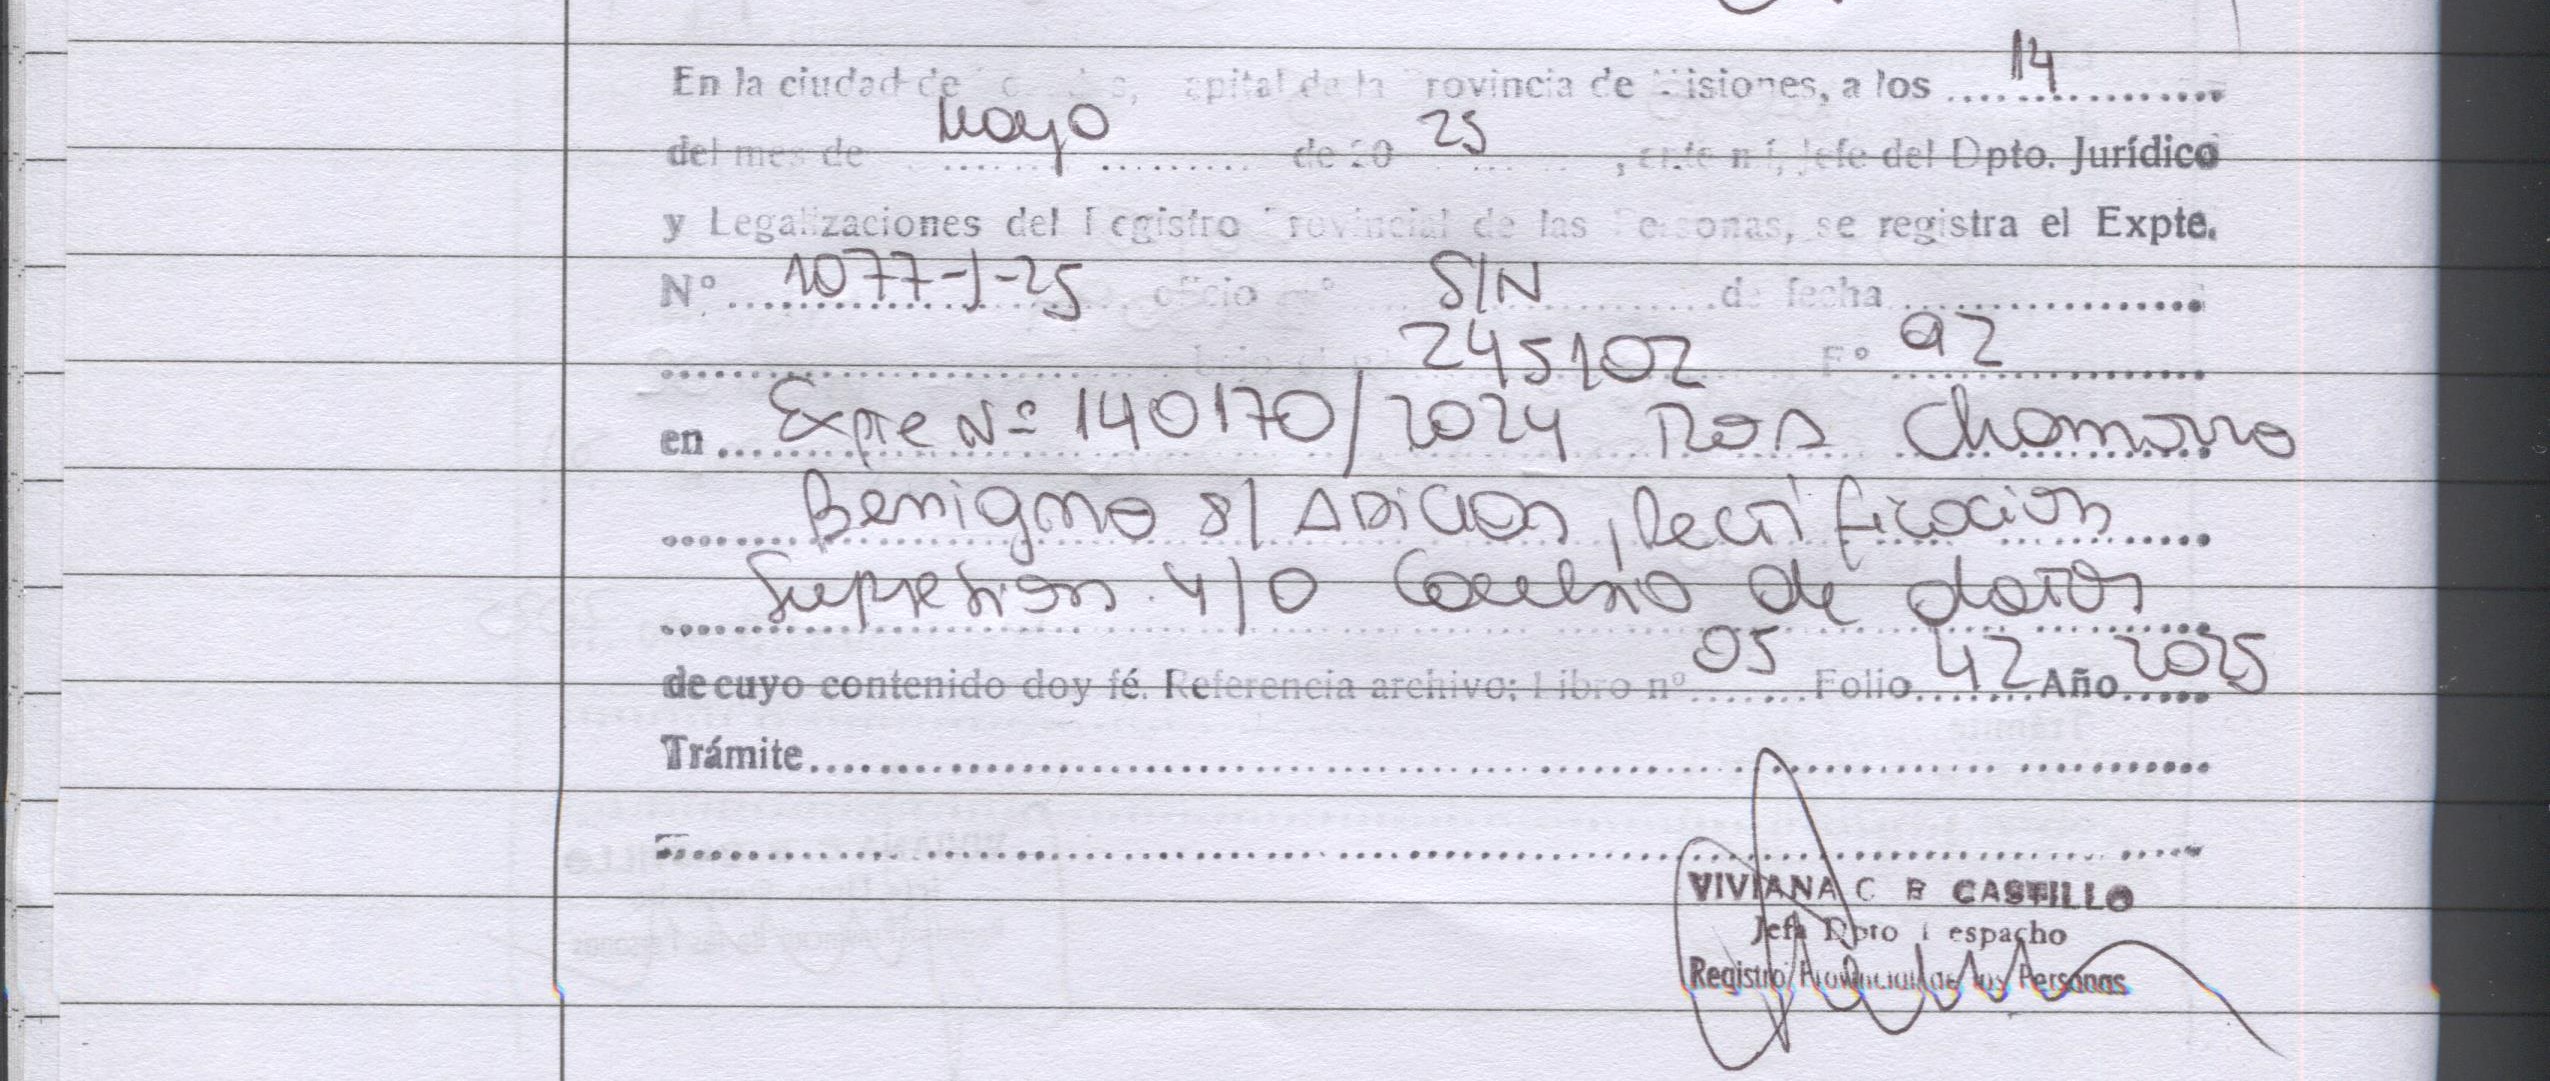 En la ciudad de Posadas, Capital de la Provincia de Misiones, a los 14
del mes de Mayo de 20 25, ante mí, Jefe del Dpto. Jurídico
y Legalizaciones del Registro Provincial de las Personas, se registra el Expte.
Nº 1077-J-25 oficio nº S/N de fecha
245102 Fº 92
en Expte Nº 140170/2024 Chamorro
Benigno s/ Adicion, Rectificacion
Supresion y/o Cambio de datos
de cuyo contenido doy fé. Referencia archivo: Libro nº 05 Folio 42 Año 2025
Trámite
VIVIANA C B CASTILLO
Jefa Dpto Despacho
Registro Provincial de las Personas